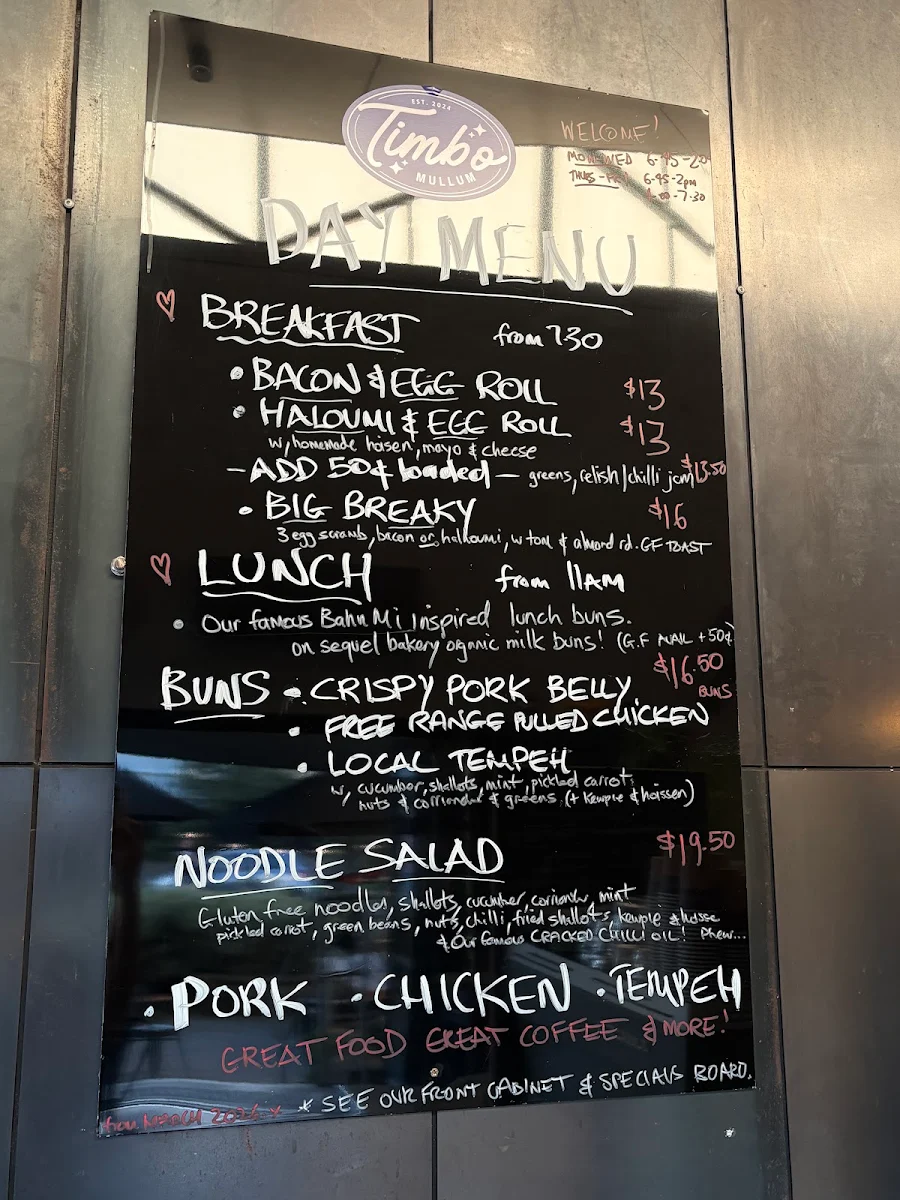 EST. 2024
Timbo
MULLUM
WELCOME!
MON-WED 6-45-2
THURS - FRI 6-45-2pm
-00-7.30
DAY MENU
BREAKFAST from 730
• BACON & EGG ROLL $13
• HALOUMI & EGG ROLL $13
w, homemade hoisen, mayo & cheese
- ADD 50¢ loaded - greens, relish/chilli jam $13.50
• BIG BREAKY $16
3 egg scramb, bacon or halloumi, w tom & almond rd. GF TOAST
LUNCH from 11AM
• Our famous Bahn Mi inspired lunch buns.
on sequel bakery organic milk buns! (G.F AVAIL +50¢)
BUNS • CRISPY PORK BELLY $16.50 BUNS
• FREE RANGE PULLED CHICKEN
• LOCAL TEMPEH
w, cucumber, shallots, mint, pickled carrot,
nuts & & greens (+ kewpie & hoissen)
NOODLE SALAD $19.50
Gluten free noodles, shallots, cucumber, mint
pickled carrot, green beans, nuts, chilli, fried shallots, kewpie &
& Our famous CRACKED CHILLI OIL! Phew...
• PORK • CHICKEN • TEMPEH
GREAT FOOD GREAT COFFEE & MORE!
* SEE OUR FRONT CABINET & SPECIALS BOARD.
from MARCH *